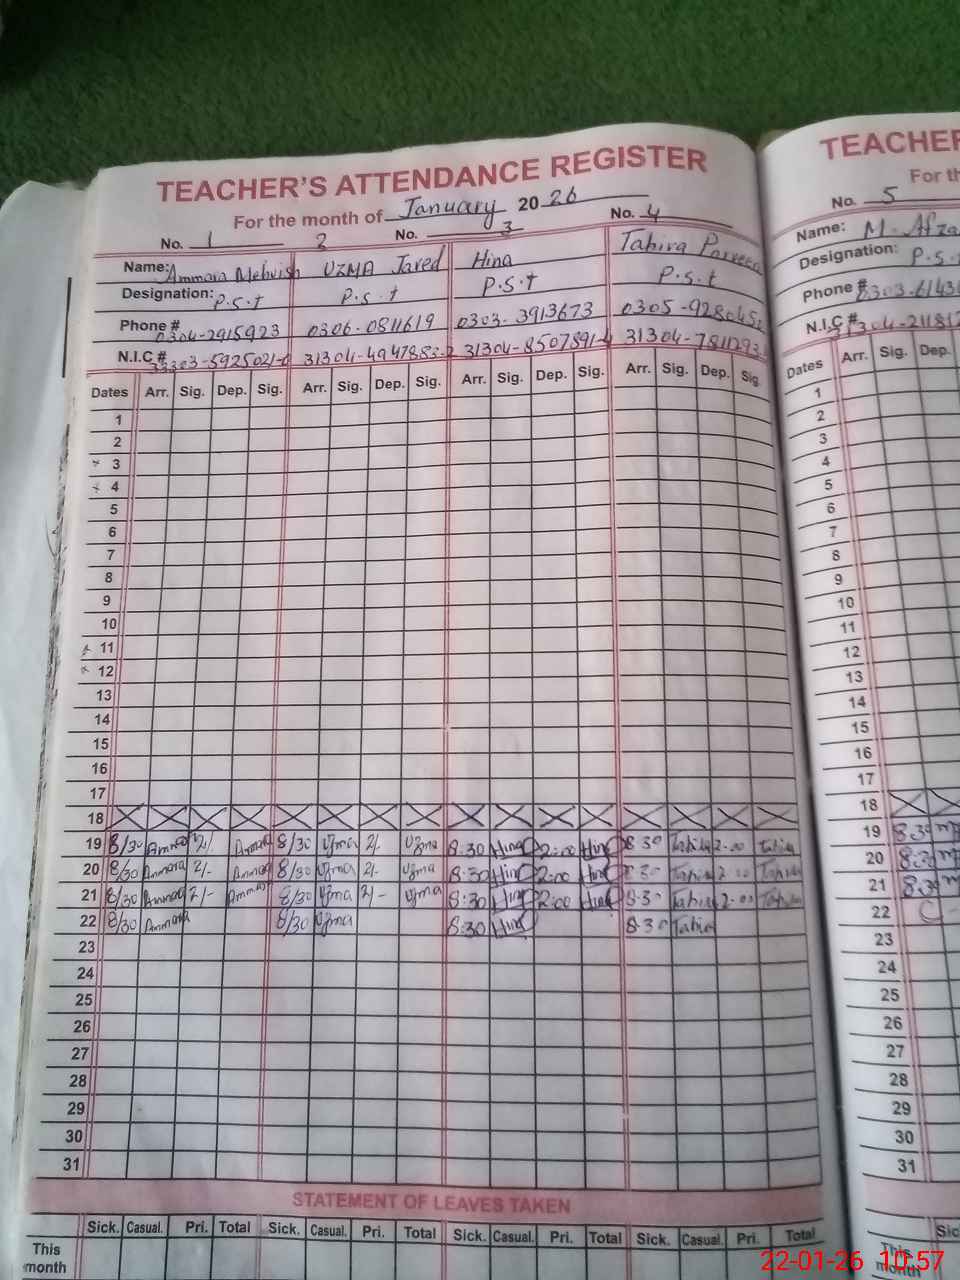 TEACHER'S ATTENDANCE REGISTER
For the month of January 2026
No. 1 2 No. 3 No. 4
Name: Ammara Mehvish UZMA Javed Hina Tahira Parveen
Designation: P.S.T P.S.T P.S.T P.S.t
Phone # 0304-2915923 0306-0811619 0303-3913673 0305-928045
N.I.C # 31304-4947883-2 31304-8507891-4 31304-7811293
Dates Arr. Sig. Dep. Sig. Arr. Sig. Dep. Sig. Arr. Sig. Dep. Sig. Arr. Sig. Dep. Sig.
1
2
3
4
5
6
7
8
9
10
11
12
13
14
15
16
17
18
19 8/30 Ammara 2/- Ammara 8/30 Uzma 2/- Uzma 8:30 Hina 2:00 Hina 8:30 Tahira 2-00 Tahira
20 8/30 Ammara 2/- Ammara 8/30 Uzma 2/- Uzma 8:30 Hina 2:00 Hina 8:30 Tahira 2-00 Tahira
21 8/30 Ammara 2/- Ammara 8/30 Uzma 2/- Uzma 8:30 Hina 2:00 Hina 8:30 Tahira 2-00 Tahira
22 8/30 Ammara 8/30 Uzma 8:30 Hina 8:30 Tahira
23
24
25
26
27
28
29
30
31
STATEMENT OF LEAVES TAKEN
Sick. Casual. Pri. Total Sick. Casual. Pri. Total Sick. Casual. Pri. Total Sick. Casual. Pri. Total
This month
TEACHER
For th
No. 5
Name: M. Afza
Designation: P.S.
Phone # 0303-6143
N.I.C # 31304-21181
Dates Arr. Sig. Dep.
1
2
3
4
5
6
7
8
9
10
11
12
13
14
15
16
17
18
19 8:30
20 8:30
21 8:30
22 C
23
24
25
26
27
28
29
30
31
Sic
This month
22-01-26 10:57